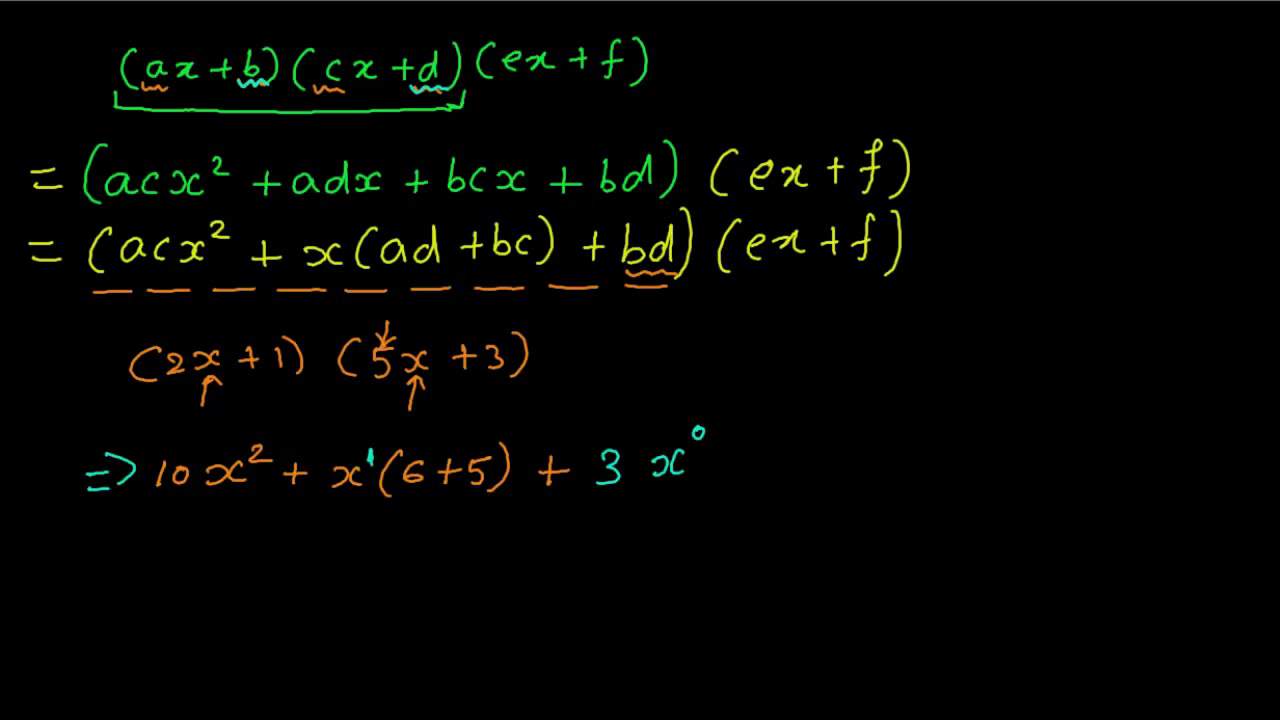 (ax + b) (cx + d) (ex + f)
= (acx² + adx + bcx + bd) (ex + f)
= (acx² + x(ad + bc) + bd) (ex + f)
(2x + 1) (5x + 3)
=> 10x² + x¹(6+5) + 3 x⁰